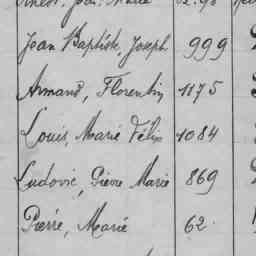 Jean Baptiste, Joseph 999
Armand, Florentin 1175
Louis, Marie Félix 1084
Ludovic, Pierre Marie 869
Pierre, Marie 62